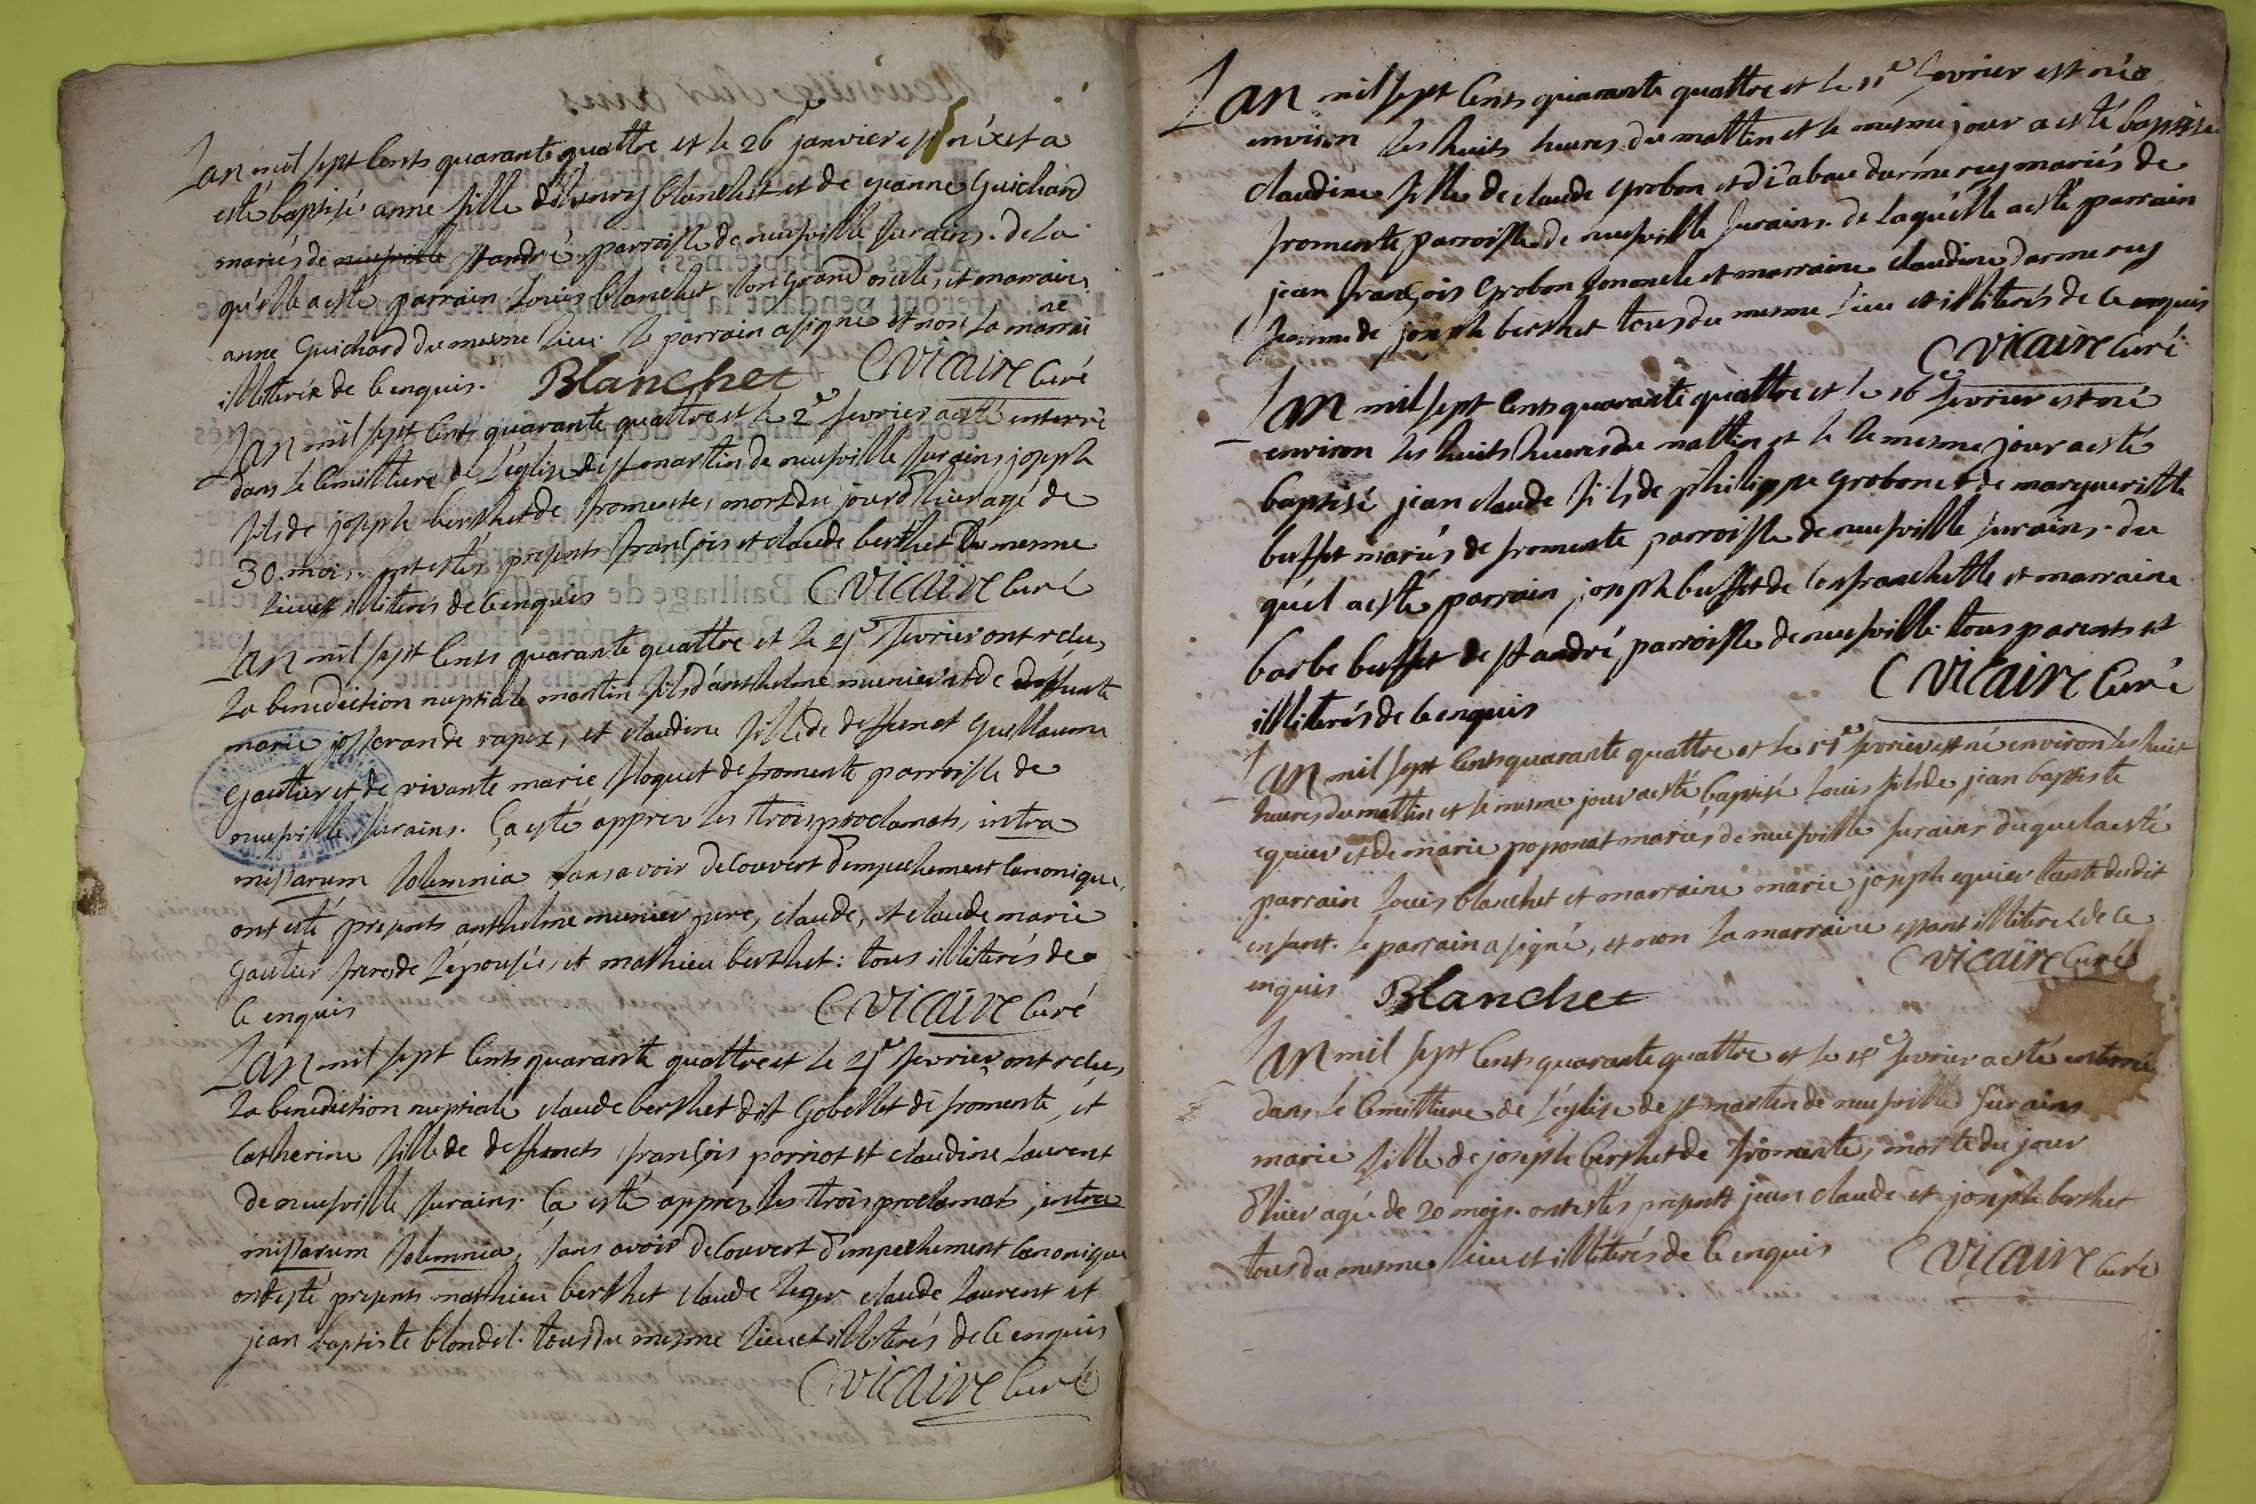 Lan mil sept Cents quarante quattre et le 26e janvier est née et a
esté baptisé anne fille d'henry blanchet et de jeanne Guichard
mariés de neufville st andré parroisse de neufville surains. de La
qu'elle a esté parrain Louis blanchet son grand oncle, et marraine
anne Guichard du mesme lieu. le parrain a signe et non La marrai
ne
illiterée de ce enquis. Blanchet Vicaire Curé
Lan mil sept Cents quarante quattre et le 2e fevrier a esté enterré
dans le Cemittiere de L'église de st martin de neufville surains joseph
fils de joseph berthet de fromente, mort du jour d'hier agé de
30 mois. ont estés presents françois et claude berthet du mesme
lieu et illiterés de Ce enquis Vicaire Curé
Lan mil sept Cents quarante quattre et le fevrier ont relu
La benediction nuptiale martin fils d'anthelme munier et de deffunte
marie josserande rapex, et claudine fille de deffunct Guillaume
Gautier et de vivante marie floquet de fromente parroisse de
neufville surains. Ça esté apprez les trois proclamats, intra
missarum solemnia sans avoir decouvert d'empechement canonique,
ont esté presents anthelme munier pere, claude, et claude marie
Gautier freres de L'épousée, et mathieu berthet: tous illiterés de
Ce enquis Vicaire Curé
Lan mil sept Cents quarante quattre et le fevrier ont relu
La benediction nuptiale claude berthet dit Gobellet de fromente, et
Catherine fille de deffuncts françois porriot et claudine Laurent
de neufville surains. Ça esté apprez les trois proclamats, intra
missarum solemnia, sans avoir decouvert d'empechement canonique
ont esté presents mathieu berthet claude Leger claude Laurent et
jean baptiste blondel. tous du mesme lieu et illiterés de Ce enquis
Vicaire Curé
Lan mil sept Cents quarante quattre et le 11e fevrier est née
environ les huits heures du mattin et le mesme jour a esté baptisée
claudine fille de claude grobon et d'isabau darmerey mariés de
fromente parroisse de neufville surains. de Laquelle a esté parrain
jean françois grobon son oncle et marraine claudine darmerey
femme de joseph berthet tous du mesme lieu et illiterés de Ce enquis
Vicaire Curé
Lan mil sept Cents quarante quattre et le 16e fevrier est né
environ les huits heures du mattin et le le mesme jour a esté
baptisé jean claude fils de philippe grobon et de marguerittte
buffet mariés de fromente parroisse de neufville surains. du
quel a esté parrain joseph buffet de Confranchette et marraine
barbe buffet de st andré, parroisse de neufville tous parents et
illiterés de Ce enquis Vicaire Curé
Lan mil sept Cents quarante quattre et le fevrier est né environ les huit
heures du mattin et le mesme jour a esté baptisé Louis fils de jean baptiste
equier et de marie poponat mariés de neufville surains duquel a esté
parrain Louis blanchet et marraine marie joseph equier tante dudit
enfant. le parrain a signé, et non La marraine estant illiterée de Ce
enquis Blanchet Vicaire Curé
Lan mil sept Cents quarante quattre et le fevrier a esté enterrée
dans le Cemittiere de L'église de st martin de neufville surains
marie fille de joseph berthet de fromente, morte du jour
d'hier agée de 20 mois. ont estés presents jean claude et joseph berthet
tous du mesme lieu et illiterés de Ce enquis Vicaire Curé